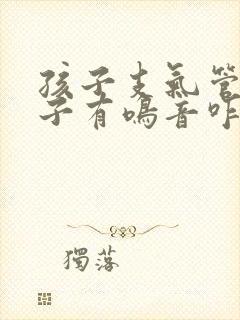 孩子支氣管
子有鳴音咋
獨落